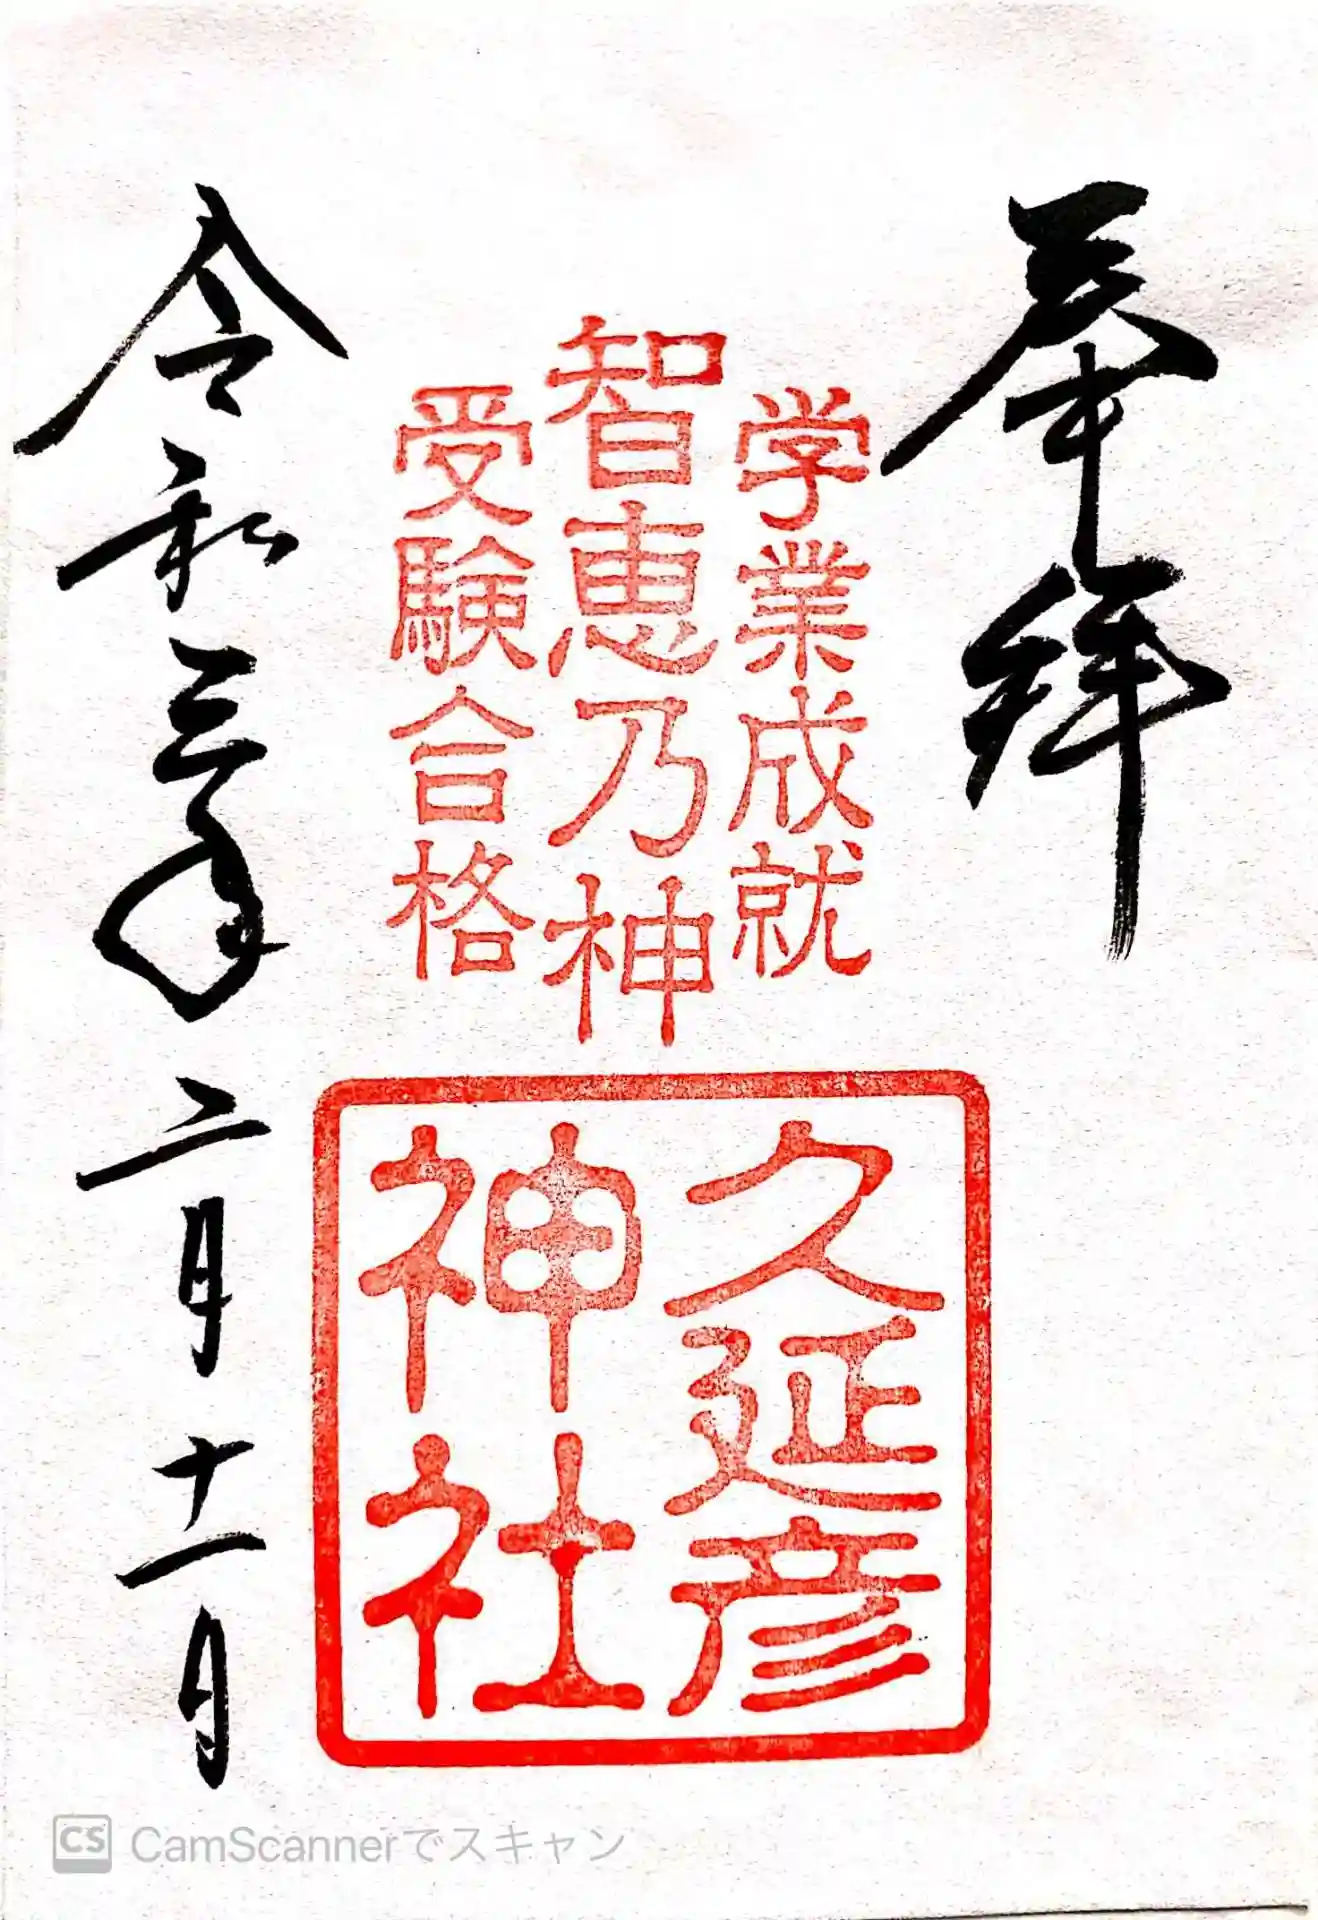 奉拝
学業成就
智恵乃神
受験合格
久延彦
神社
令和三年二月十一日
CS CamScannerでスキャン